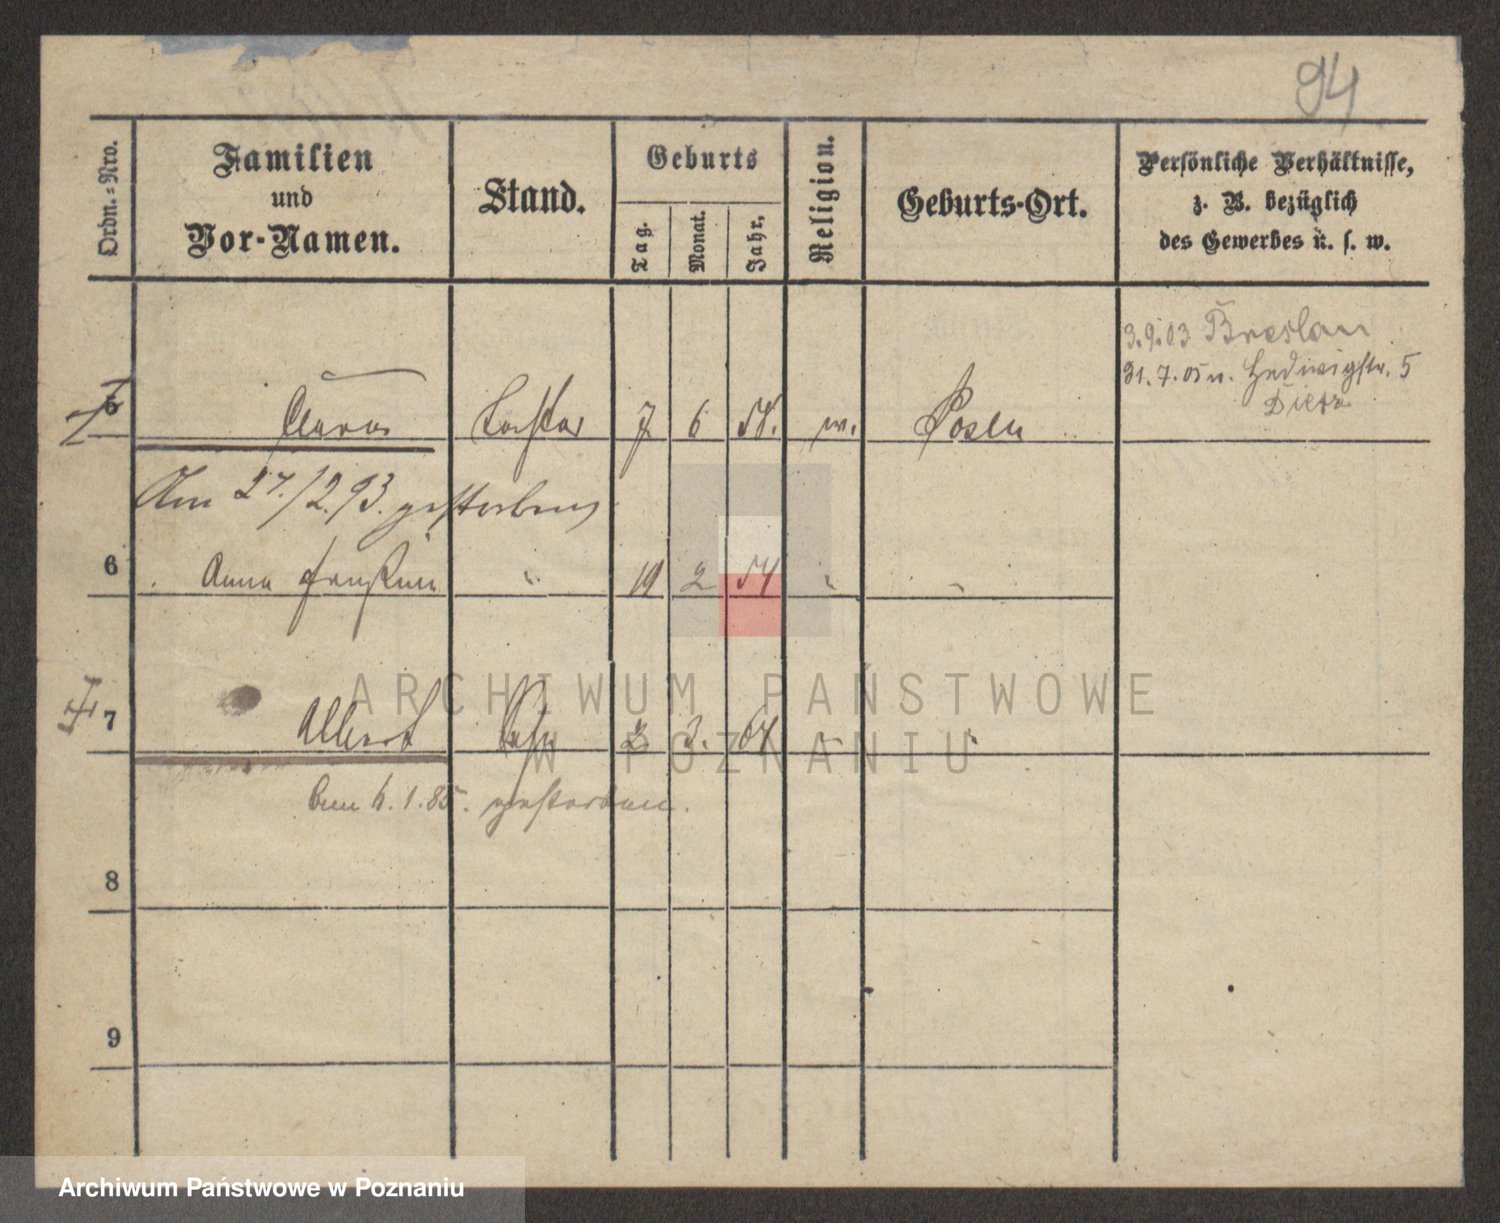 94
Ordn.=Nro.
Familien
und
Vor-Namen.
Stand.
Geburts
Tag.
Monat.
Jahr.
Religion.
Geburts-Ort.
Persönliche Verhältnisse,
z. B. bezüglich
des Gewerbes u. s. w.
3.9.03 Breslau
31.7.05 n. Hedwigstr. 5
5 Clara Tochter 7 6 54. Posen
Am 27./2.93. gestorben
6 Anna 19 2 54
7 Albert Sohn 2 3. 64
6.1.85. gestorben.
8
9
ARCHIWUM PAŃSTWOWE
W POZNANIU
Archiwum Państwowe w Poznaniu